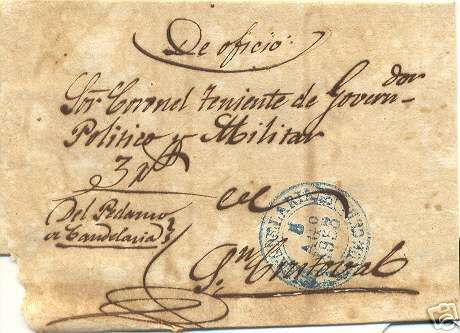 De oficio
Sor Coronel teniente de Governdor
Politico y Militar
en
Del Pedaneo
de Candelaria
Sn Cristoval
CANDELARIA
5
AGO